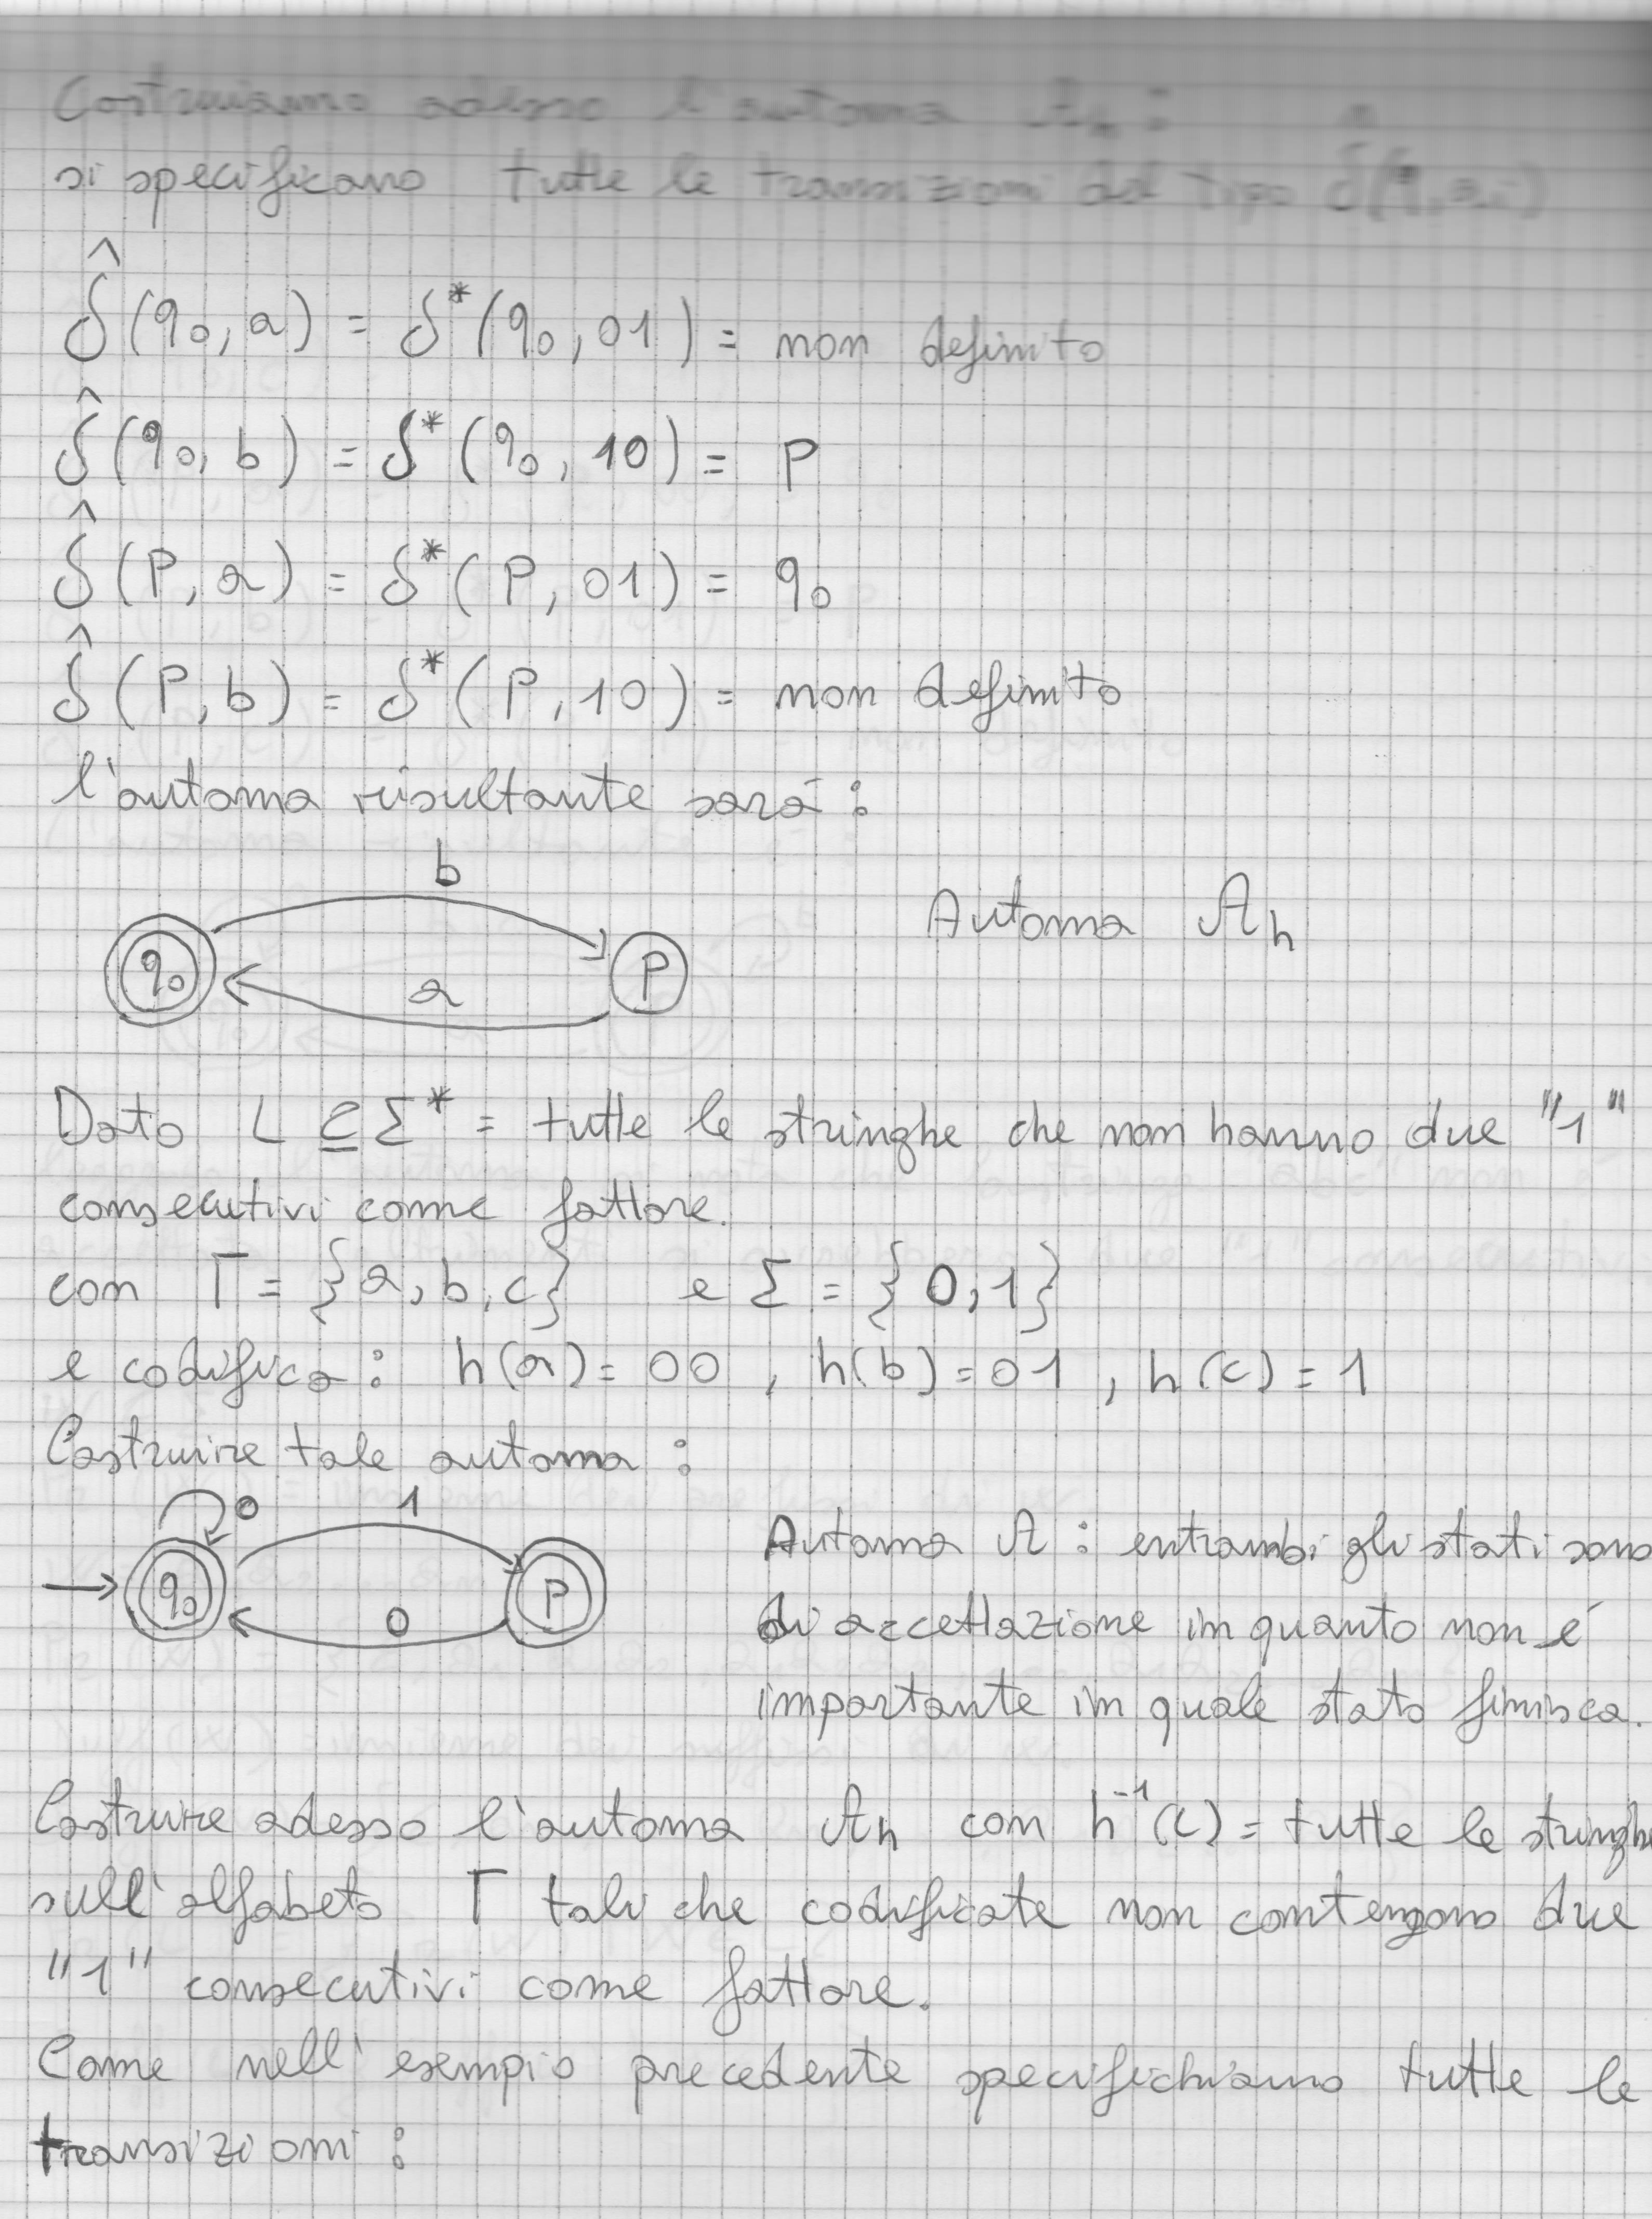 Costruiamo adesso l'automa Ah :
si specificano tutte le transizioni del tipo δ̂(q,σi)
δ̂(q₀,a) = δ*(q₀,01) = non definito
δ̂(q₀,b) = δ*(q₀,10) = P
δ̂(P,a) = δ*(P,01) = q₀
δ̂(P,b) = δ*(P,10) = non definito
l'automa risultante sará :
b
q₀ P
a
Automa Ah
Dato L ⊆ Σ* = tutte le stringhe che non hanno due "1"
consecutivi come fattore.
con Γ = {a,b,c} e Σ = {0,1}
e codifica : h(a) = 00 , h(b) = 01 , h(c) = 1
Costruire tale automa :
0 1
q₀ P
0
Automa A : entrambi gli stati sono
di accettazione in quanto non é
importante in quale stato finisca.
Costruire adesso l'automa Ah con h⁻¹(L) = tutte le stringhe
sull'alfabeto Γ tali che codificate non contengono due
"1" consecutivi come fattore.
Come nell'esempio precedente specifichiamo tutte le
transizioni :